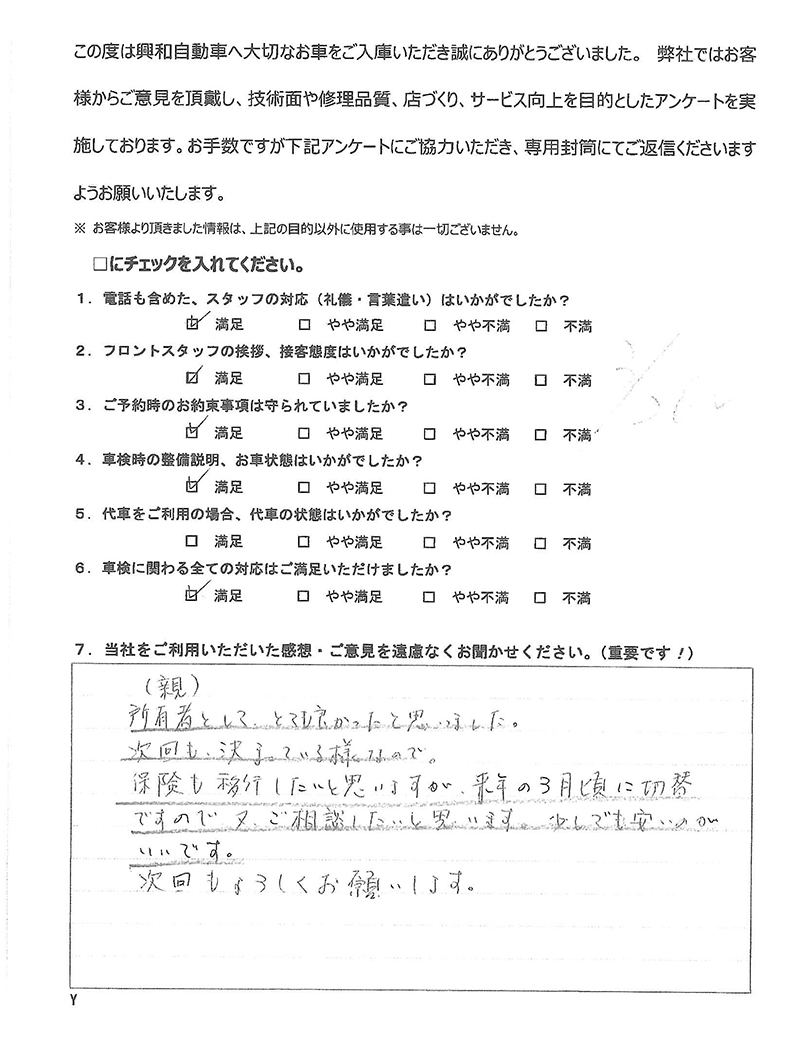 この度は興和自動車へ大切なお車をご入庫いただき誠にありがとうございました。 弊社ではお客
様からご意見を頂戴し、技術面や修理品質、店づくり、サービス向上を目的としたアンケートを実
施しております。お手数ですが下記アンケートにご協力いただき、専用封筒にてご返信くださいます
ようお願いいたします。
※ お客様より頂きました情報は、上記の目的以外に使用する事は一切ございません。
□にチェックを入れてください。
1．電話も含めた、スタッフの対応（礼儀・言葉遣い）はいかがでしたか？
☑ 満足 □ やや満足 □ やや不満 □ 不満
2．フロントスタッフの挨拶、接客態度はいかがでしたか？
☑ 満足 □ やや満足 □ やや不満 □ 不満
3．ご予約時のお約束事項は守られていましたか？
☑ 満足 □ やや満足 □ やや不満 □ 不満
4．車検時の整備説明、お車状態はいかがでしたか？
☑ 満足 □ やや満足 □ やや不満 □ 不満
5．代車をご利用の場合、代車の状態はいかがでしたか？
□ 満足 □ やや満足 □ やや不満 □ 不満
6．車検に関わる全ての対応はご満足いただけましたか？
☑ 満足 □ やや満足 □ やや不満 □ 不満
7．当社をご利用いただいた感想・ご意見を遠慮なくお聞かせください。（重要です！）
（親）
所有者として、とても良かったと思いました。
次回も、決まっている様なので。
保険も移行したいと思いますが、来年の3月頃に切替
ですので又、ご相談したいと思います。少しでも安いのが
いいです。
次回もよろしくお願いします。
Y